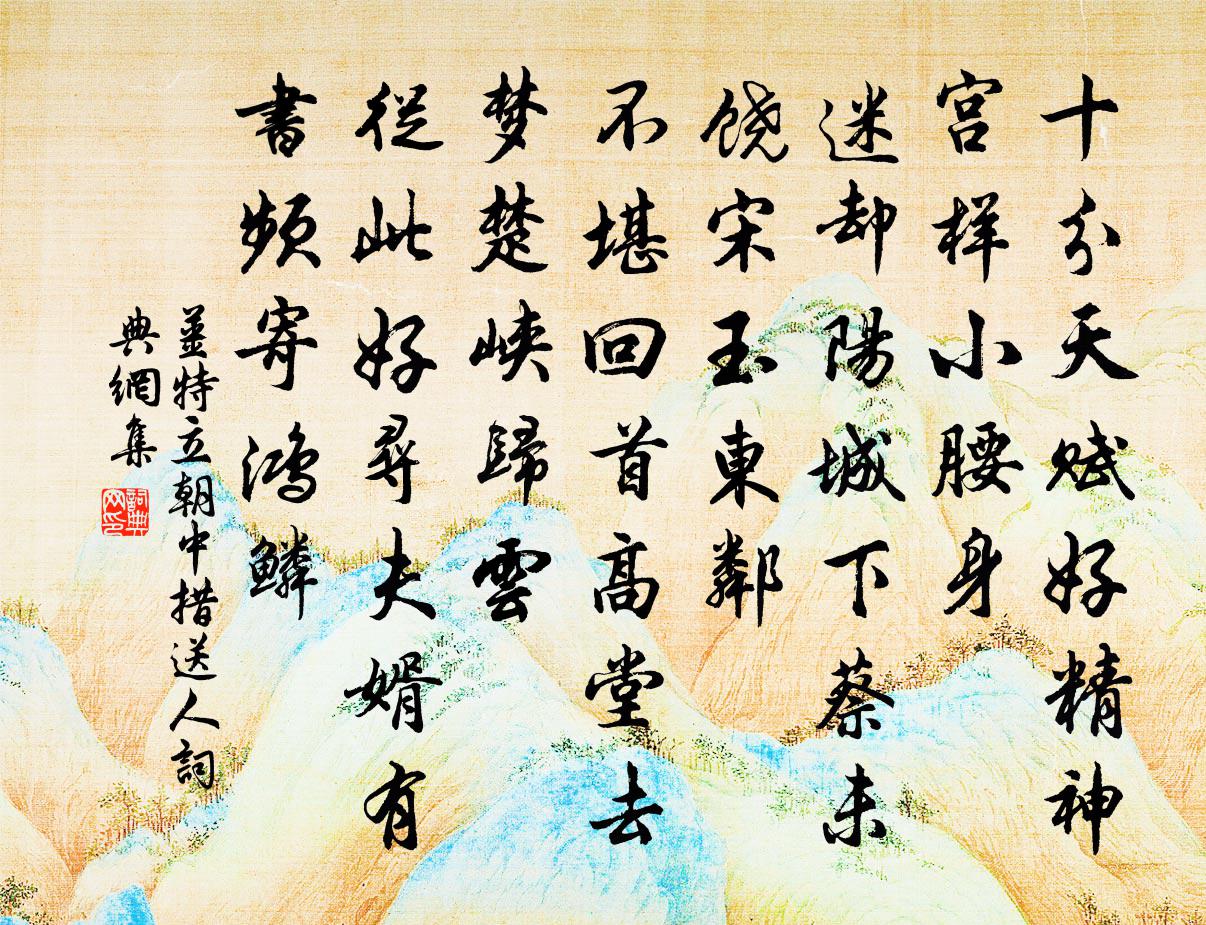 十分天賦好精神
宫样小腰身
迷却陽城下蔡未
饒宋玉東鄰
不堪回首高堂去
梦楚峽歸雲
從此好尋夫婿有
書頻寄鴻鱗
姜特立朝中措送人詞
典網集
詞典网印